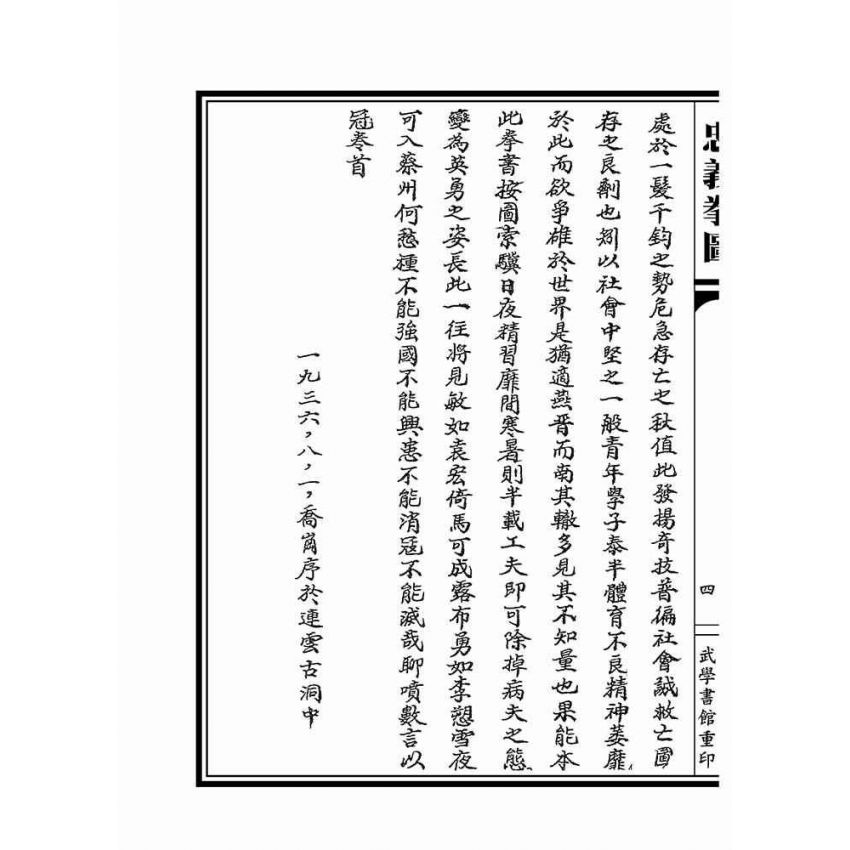 忠義拳圖
四
武學書館重印
處於一髮千鈞之勢危急存亡之秋值此發揚奇技普徧社會誠救亡圖
存之良劑也矧以社會中堅之一般青年學子泰半體育不良精神萎靡
於此而欲爭雄於世界是猶適燕晋而南其轍多見其不知量也果能本
此拳書按圖索驥日夜精習靡間寒暑則半載工夫即可除掉病夫之態
變為英勇之姿長此一往將見敏如袁宏倚馬可成露布勇如李愬雪夜
可入蔡州何愁種不能強國不能興患不能消寇不能滅哉聊噴數言以
冠卷首
一九三六，八，一，喬崗序於連雲古洞中